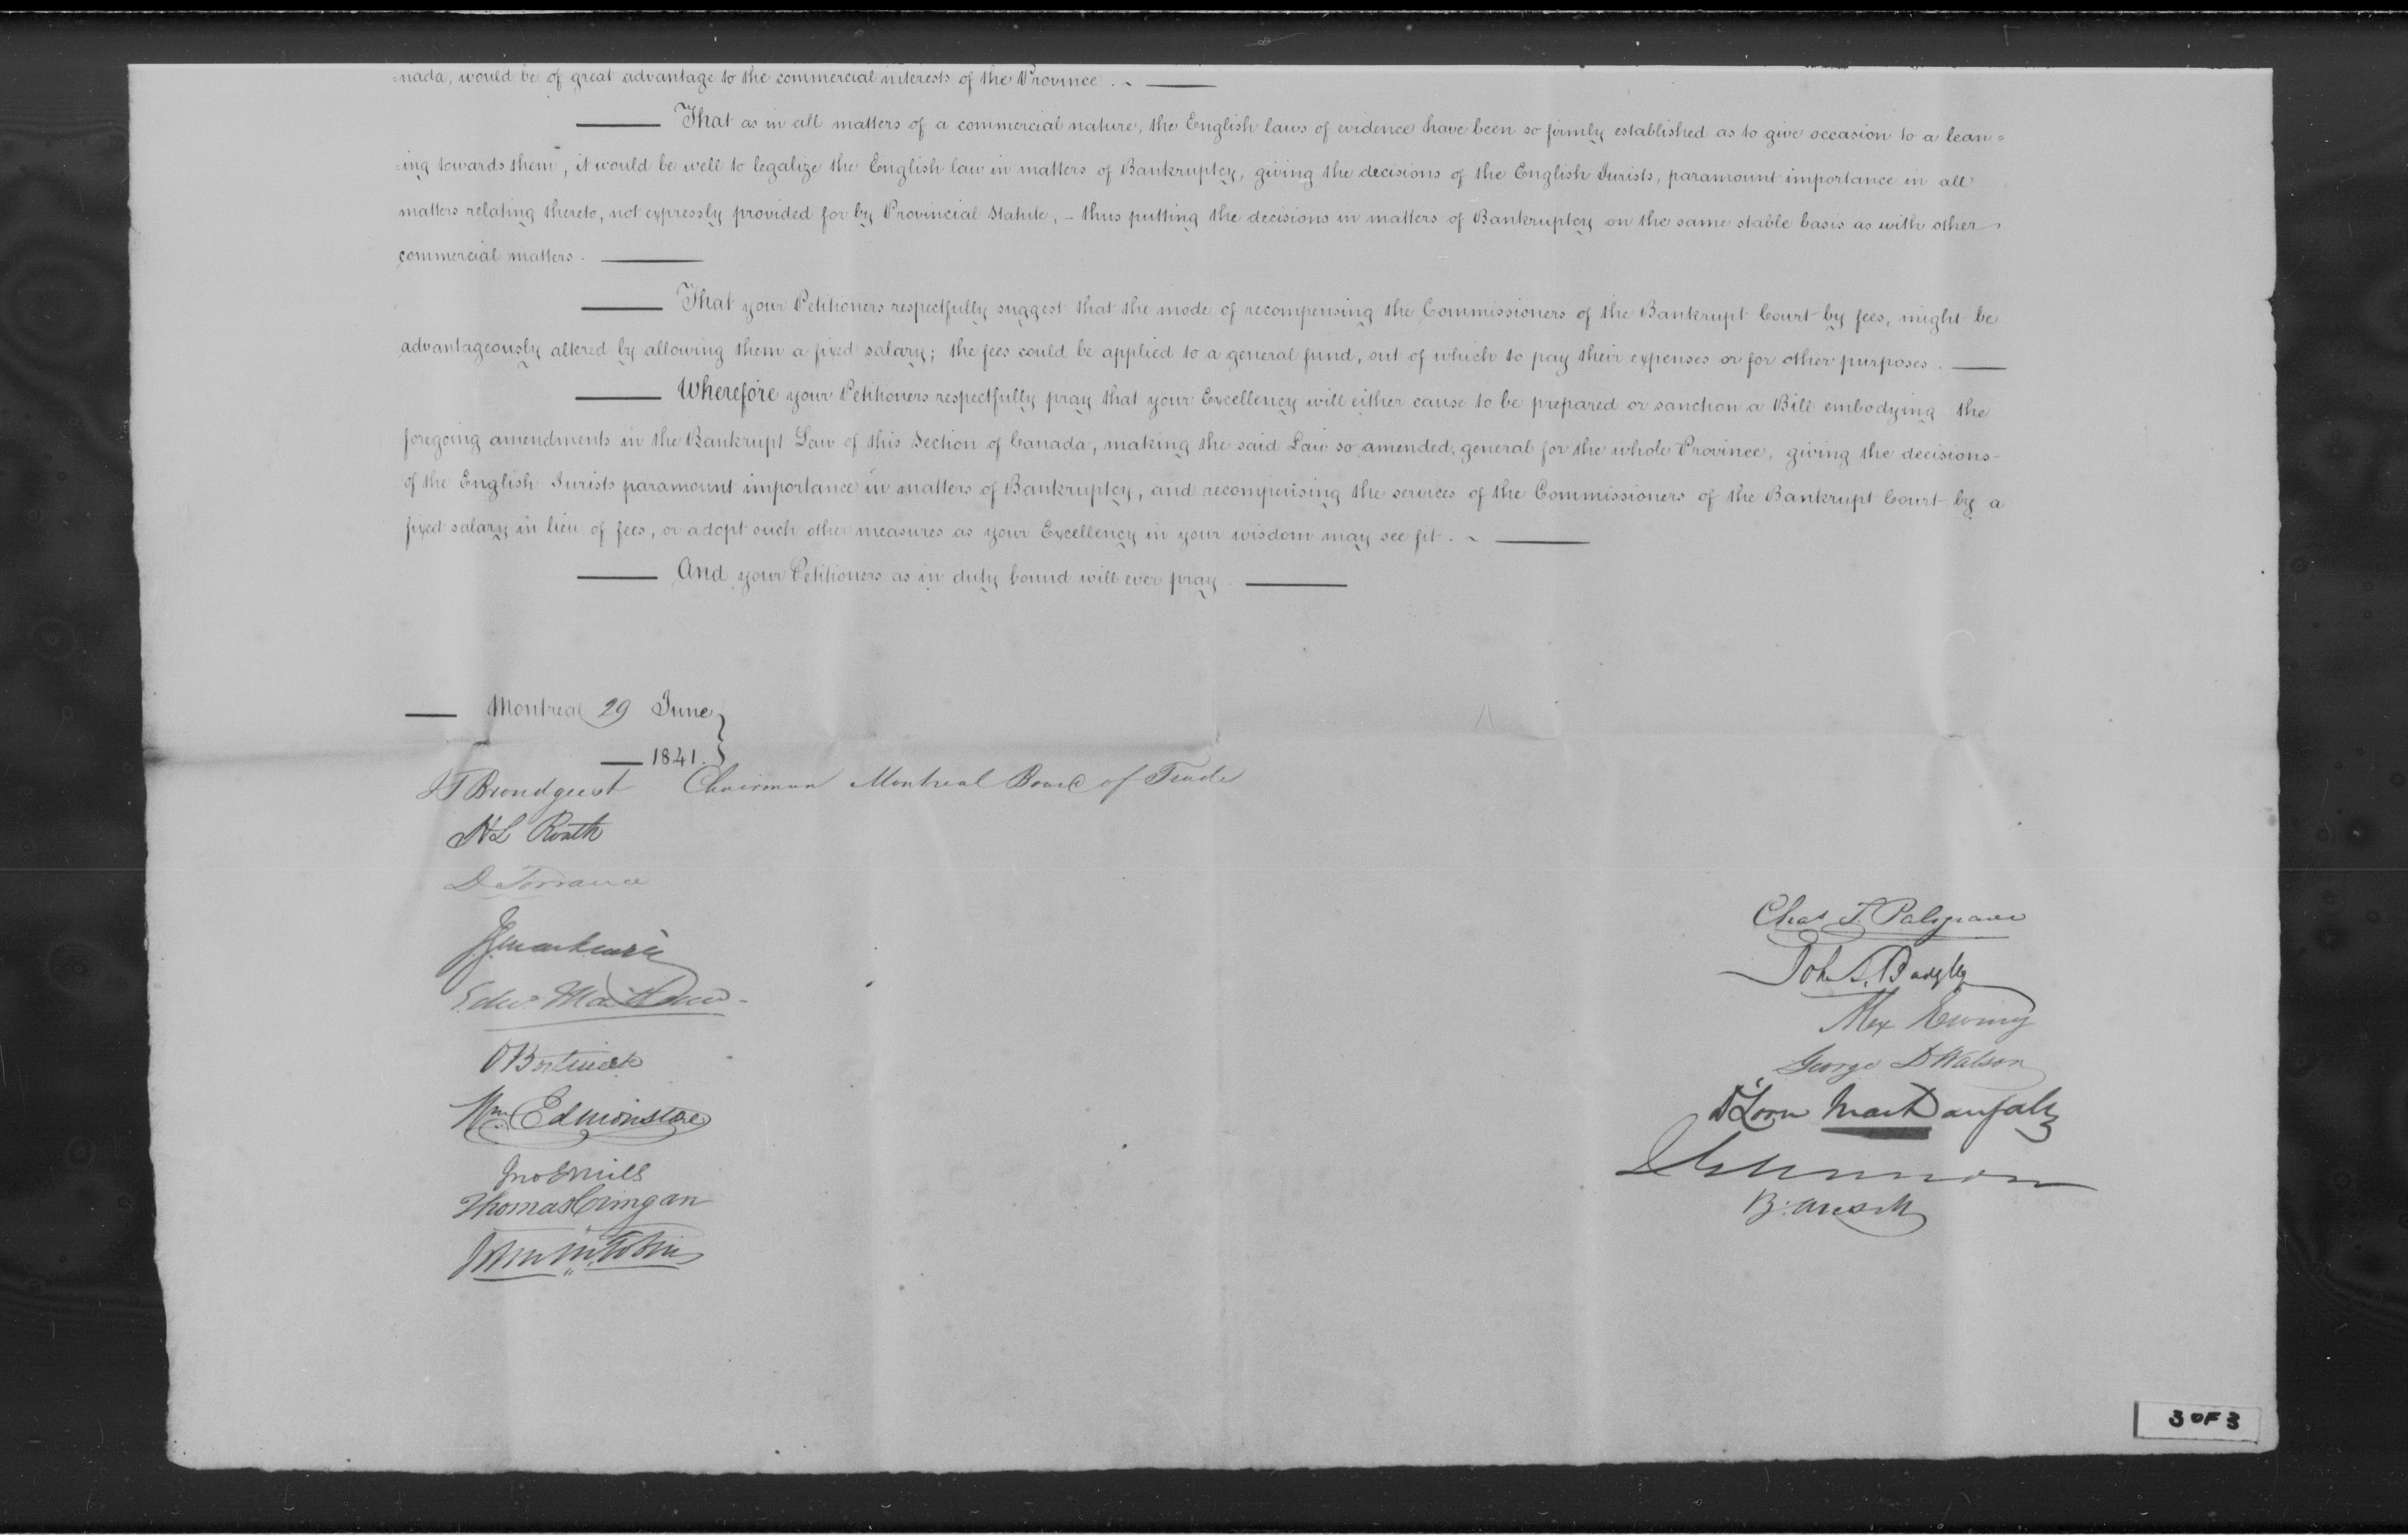 =nada, would be of great advantage to the commercial interests of the Province. ~ —
— That as in all matters of a commercial nature, the English laws of evidence have been so firmly established as to give occasion to a lean=
=ing towards them, it would be well to legalize the English law in matters of Bankruptcy, giving the decisions of the English Jurists, paramount importance in all
matters relating thereto, not expressly provided for by Provincial Statute, – thus putting the decisions in matters of Bankruptcy on the same stable basis as with other
commercial matters. —
— That your Petitioners respectfully suggest that the mode of recompensing the Commissioners of the Bankrupt Court by fees, might be
advantageously altered by allowing them a fixed salary; the fees could be applied to a general fund, out of which to pay their expenses or for other purposes. —
— Wherefore your Petitioners respectfully pray that your Excellency will either cause to be prepared or sanction a Bill embodying the
foregoing amendments in the Bankrupt Law of this Section of Canada, making the said Law so amended, general for the whole Province, giving the decisions
of the English Jurists paramount importance in matters of Bankruptcy, and recompensing the services of the Commissioners of the Bankrupt Court by a
fixed salary in lieu of fees, or adopt such other measures as your Excellency in your wisdom may see fit. ~ —
— And your Petitioners as in duty bound will ever pray. —
— Montreal 29 June }
— 1841. }
J T Brondgeest Chairman Montreal Board of Trade
H L Routh
D Torrance
J G Mackenzie
O Bostwick
Wm Edmonstone
Jno E Mills
Thomas Cringan
John M. Tobin
Chas T. Palsgrave
John S. Badgley
Alex Ewing
George D Watson
3 OF 3